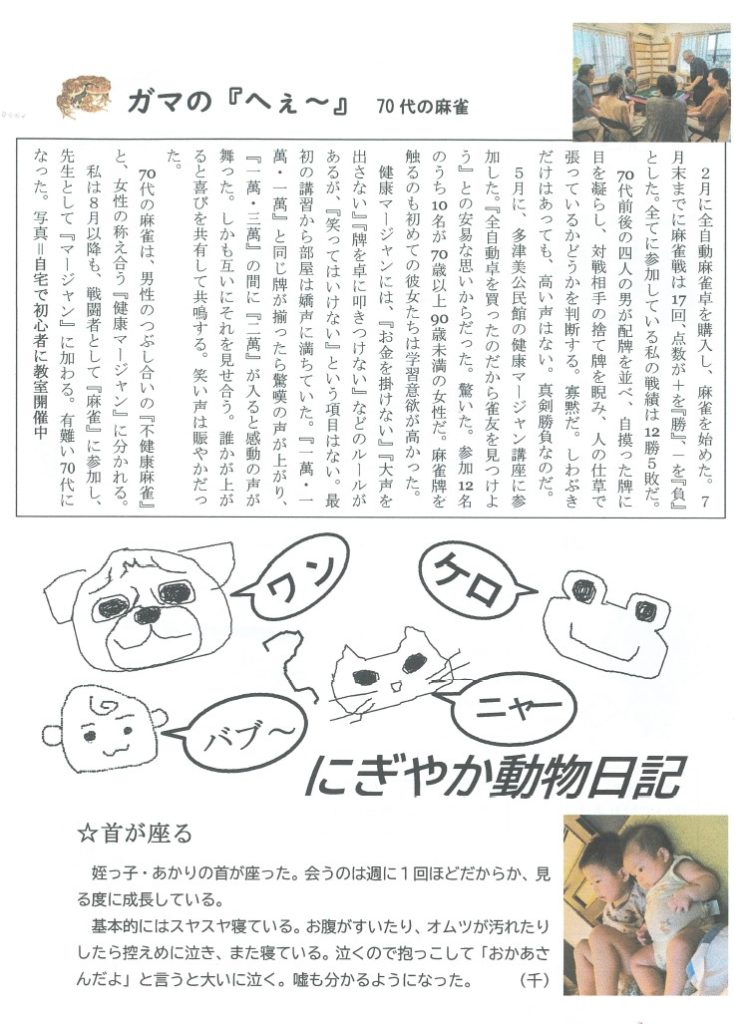 ガマの『へぇ～』 70代の麻雀
２月に全自動麻雀卓を購入し、麻雀を始めた。７
月末までに麻雀戦は17回、点数が＋を『勝』、－を『負』
とした。全てに参加している私の戦績は12勝５敗だ。
70代前後の四人の男が配牌を並べ、自摸った牌に
目を凝らし、対戦相手の捨て牌を睨み、人の仕草で
張っているかどうかを判断する。寡黙だ。しわぶき
だけはあっても、高い声はない。真剣勝負なのだ。
５月に、多津美公民館の健康マージャン講座に参
加した。『全自動卓を買ったのだから雀友を見つけよ
う』との安易な思いからだった。驚いた。参加12名
のうち10名が70歳以上90歳未満の女性だ。麻雀牌を
触るのも初めての彼女たちは学習意欲が高かった。
健康マージャンには、『お金を掛けない』『大声を
出さない』『牌を卓に叩きつけない』などのルールが
あるが、『笑ってはいけない』という項目はない。最
初の講習から部屋は嬌声に満ちていた。『一萬・一
萬・一萬』と同じ牌が揃ったら驚嘆の声が上がり、
『一萬・三萬』の間に『二萬』が入ると感動の声が
舞った。しかも互いにそれを見せ合う。誰かが上が
ると喜びを共有して共鳴する。笑い声は賑やかだっ
た。
70代の麻雀は、男性のつぶし合いの『不健康麻雀』
と、女性の称え合う『健康マージャン』に分かれる。
私は８月以降も、戦闘者として『麻雀』に参加し、
先生として『マージャン』に加わる。有難い70代に
なった。写真＝自宅で初心者に教室開催中
ワン
ケロ
ニャー
バブ～
にぎやか動物日記
☆首が座る
姪っ子・あかりの首が座った。会うのは週に１回ほどだからか、見
る度に成長している。
基本的にはスヤスヤ寝ている。お腹がすいたり、オムツが汚れたり
したら控えめに泣き、また寝ている。泣くので抱っこして「おかあさ
んだよ」と言うと大いに泣く。嘘も分かるようになった。 （千）